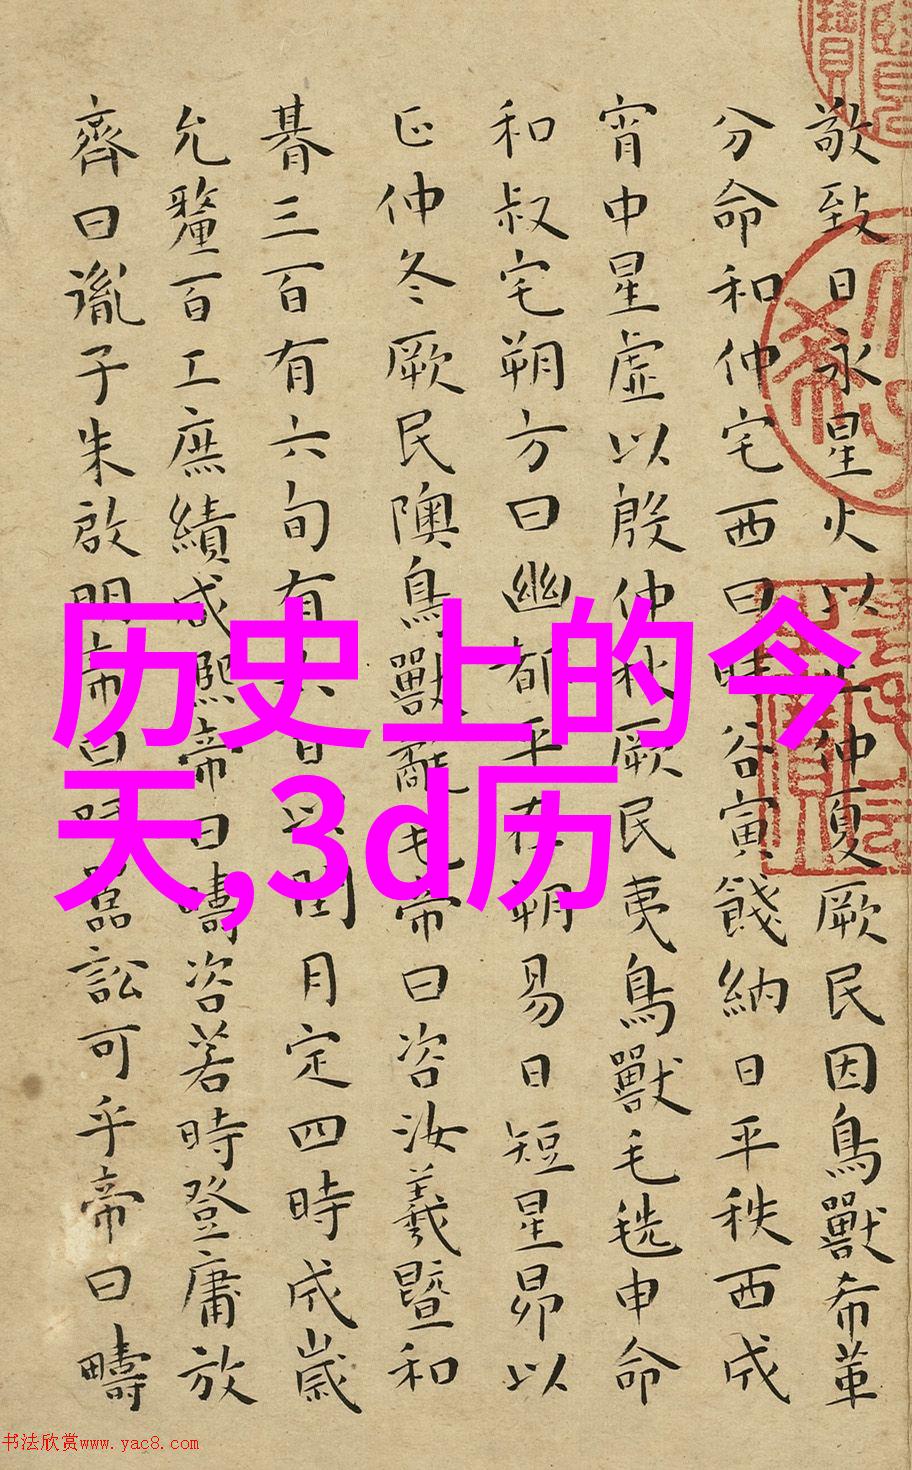 历史上的今
天,3d历
敬致日永星火以正仲夏厥民因鳥獸希革
分命和仲宅西曰昧谷寅餞納日平秩西成
宵中星虛以殷仲秋厥民夷鳥獸毛毨申命
和叔宅朔方曰幽都平在朔易日短星昴以
正仲冬厥民隩鳥獸氄毛帝曰咨汝羲暨和
朞三百有六旬有六日以閏月定四時成歲
允釐百工庶績咸熙帝曰疇咨若時登庸放
齊曰胤子朱啟明帝曰吁嚚訟可乎帝曰疇
书法欣赏www.yac8.com